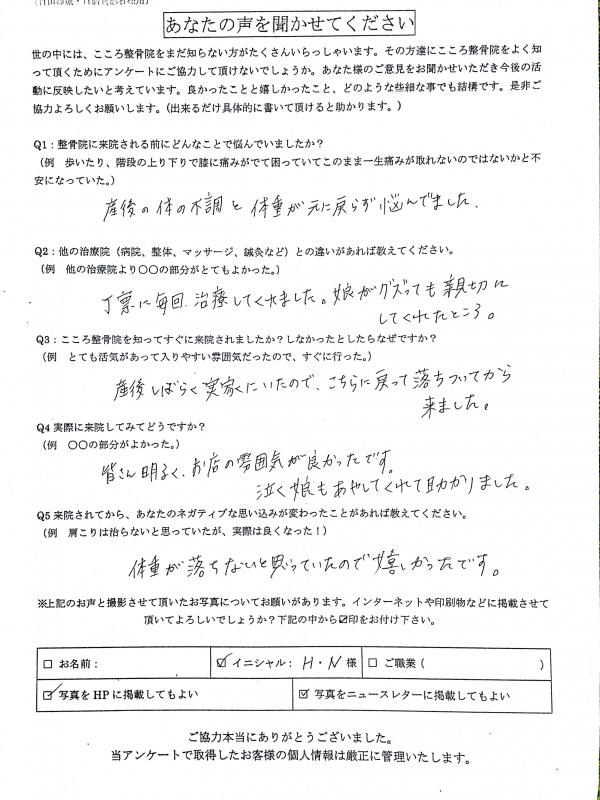 あなたの声を聞かせてください
世の中には、こころ整骨院をまだ知らない方がたくさんいらっしゃいます。その方達にこころ整骨院をよく知
って頂くためにアンケートにご協力して頂けないでしょうか。あなた様のご意見をお聞かせいただき今後の活
動に反映したいと考えています。良かったことと嬉しかったこと、どのような些細な事でも結構です。是非ご
協力よろしくお願いします。(出来るだけ具体的に書いて頂けると助かります。)
Q1：整骨院に来院される前にどんなことで悩んでいましたか？
(例　歩いたり、階段の上り下りで膝に痛みがでて困っていてこのまま一生痛みが取れないのではないかと不
安になっていた。)
産後の体の不調と体重が元に戻らず悩んでました.
Q2：他の治療院（病院、整体、マッサージ、鍼灸など）との違いがあれば教えてください。
(例　他の治療院より〇〇の部分がとてもよかった。)
丁寧に毎回、治療してくれました。娘がグズっても親切に
してくれたところ。
Q3：こころ整骨院を知ってすぐに来院されましたか？しなかったとしたらなぜですか？
(例　とても活気があって入りやすい雰囲気だったので、すぐに行った。)
産後しばらく実家にいたので、こちらに戻って落ちついてから
来ました。
Q4 実際に来院してみてどうですか？
(例　〇〇の部分がよかった。)
皆さん明るく、お店の雰囲気が良かったです。
泣く娘もあやしてくれて助かりました。
Q5 来院されてから、あなたのネガティブな思い込みが変わったことがあれば教えてください。
(例　肩こりは治らないと思っていたが、実際は良くなった！)
体重が落ちないと思っていたので嬉しかったです。
※上記のお声と撮影させて頂いたお写真についてお願いがあります。インターネットや印刷物などに掲載させて
頂いてよろしいでしょうか？下記の中から☑印をお付け下さい。
□ お名前：　☑ イニシャル：H・N 様　□ ご職業（　　　）
☑ 写真を HP に掲載してもよい　☑ 写真をニュースレターに掲載してもよい
ご協力本当にありがとうございました。
当アンケートで取得したお客様の個人情報は厳正に管理いたします。